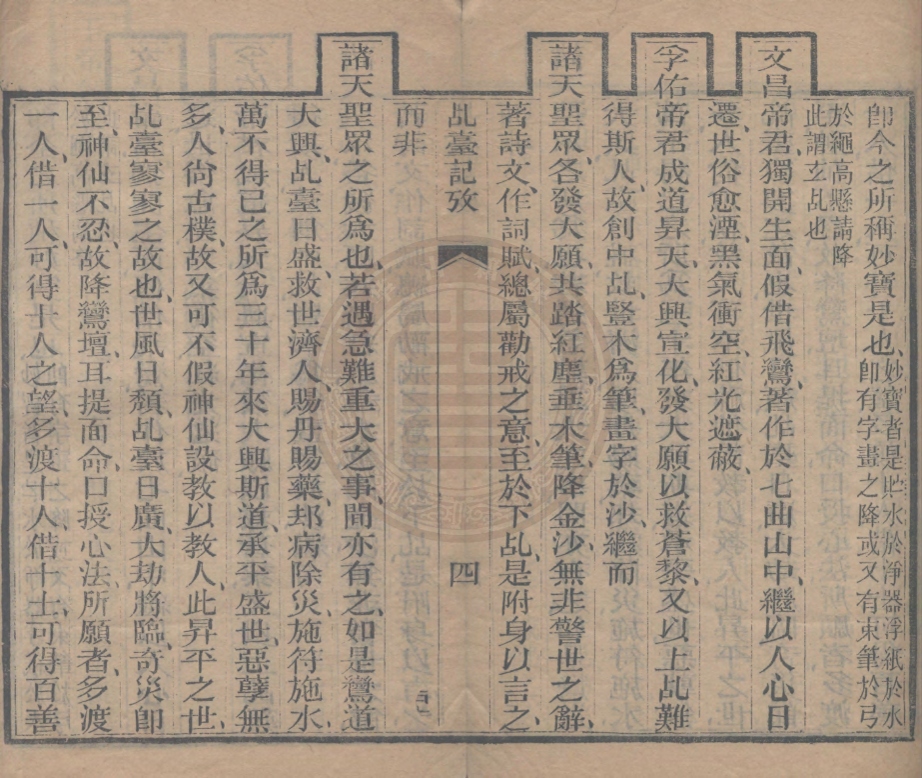 卽今之所稱妙寶是也妙寶者是貯水於淨器浮紙於水卽有字畫之降或又有束筆於弓
於繩高懸請降此謂玄乩也
文昌帝君獨開生面假借飛鸞著作於七曲山中繼以人心日
遷世俗愈湮黑氣衝空紅光遮蔽
孚佑帝君成道昇天大興宣化發大願以救蒼黎又以上乩難
得斯人故創中乩豎木爲筆畫字於沙繼而
諸天聖眾各發大願共踏紅塵垂木筆降金沙無非警世之辭
著詩文作詞賦總屬勸戒之意至於下乩是附身以言之
乩臺記攷 四
而非
諸天聖眾之所爲也若遇急難重大之事間亦有之如是鸞道
大興乩臺日盛救世濟人賜丹賜藥却病除災施符施水
萬不得已之所爲三十年來大興斯道承平盛世惡孽無
多人尙古樸故又可不假神仙設教以教人此昇平之世
乩臺寥寥之故也世風日頽乩臺日廣大劫將臨奇災卽
至神仙不忍故降鸞壇耳提面命口授心法所願者多渡
一人借一人可得十人之望多渡十人借十士可得百善